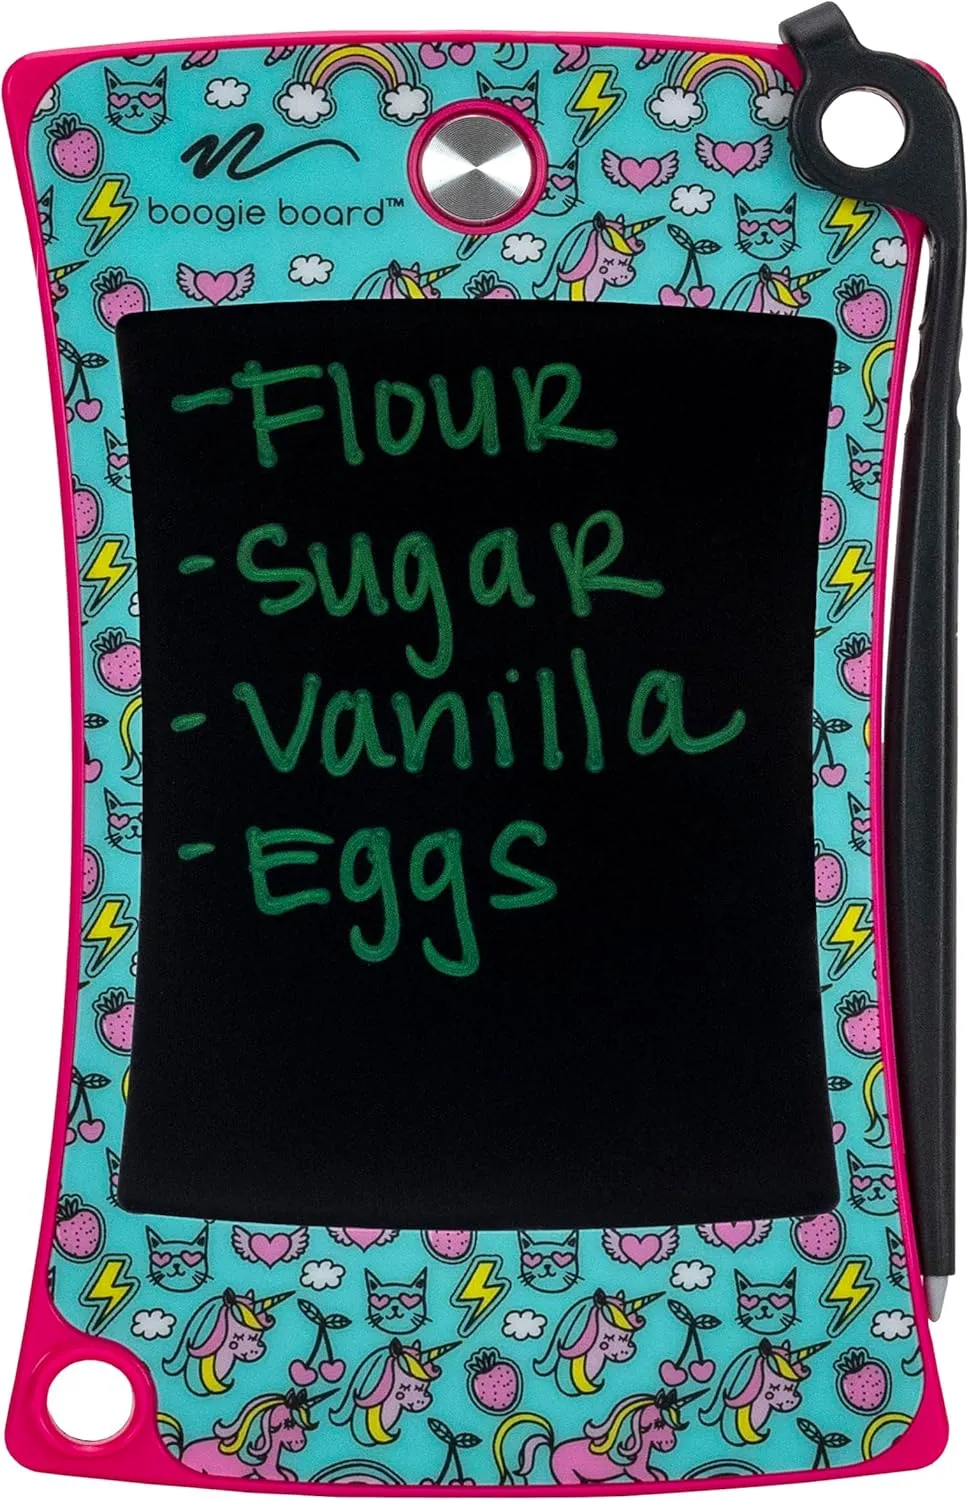 boogie board™
-Flour
-Sugar
-Vanilla
-Eggs